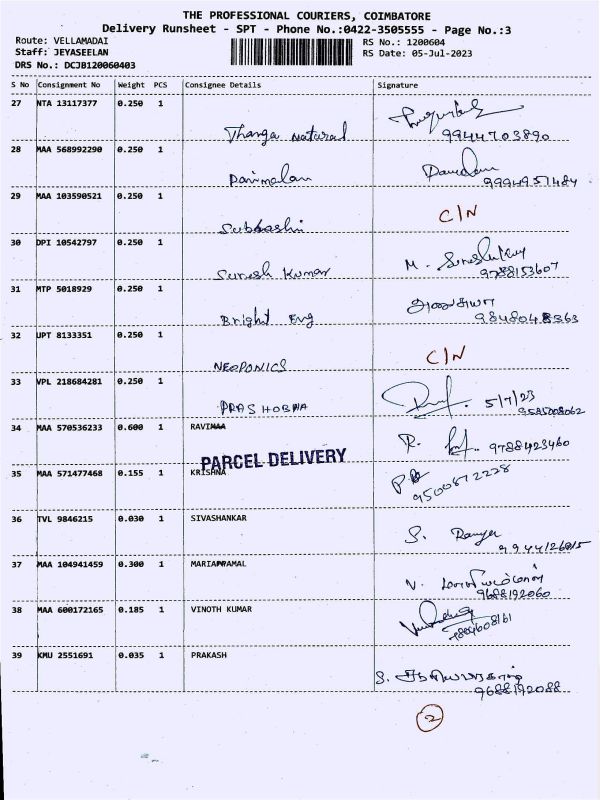 THE PROFESSIONAL COURIERS, COIMBATORE
Delivery Runsheet - SPT - Phone No.:0422-3505555 - Page No.:3
Route: VELLAMADAI RS No.: 1200604
Staff: JEYASEELAN RS Date: 05-Jul-2023
DRS No.: DCJB120060403
S No Consignment No Weight PCS Consignee Details Signature
27 NTA 13117377 0.250 1
Thanga Natural 9944703890
28 MAA 568992290 0.250 1
Parimalam 9994951484
29 MAA 103590521 0.250 1
Subhashi C/N
30 DPI 10542797 0.250 1
Suresh Kumar M. Sureshkumar 9788153607
31 MTP 5018929 0.250 1
Bright Eng
32 UPT 8133351 0.250 1
NEOPONICS C/N
33 VPL 218684281 0.250 1
PRASHOBHA 5/7/23
9585008062
34 MAA 570536233 0.600 1 RAVIMAA
R. 9788423460
PARCEL DELIVERY
35 MAA 571477468 0.155 1 KRISHNA
9500872228
36 TVL 9846215 0.030 1 SIVASHANKAR
S.
37 MAA 104941459 0.300 1 MARIAMMAL
9688192060
38 MAA 600172165 0.185 1 VINOTH KUMAR
39 KMU 2551691 0.035 1 PRAKASH
S.
9688192088
2